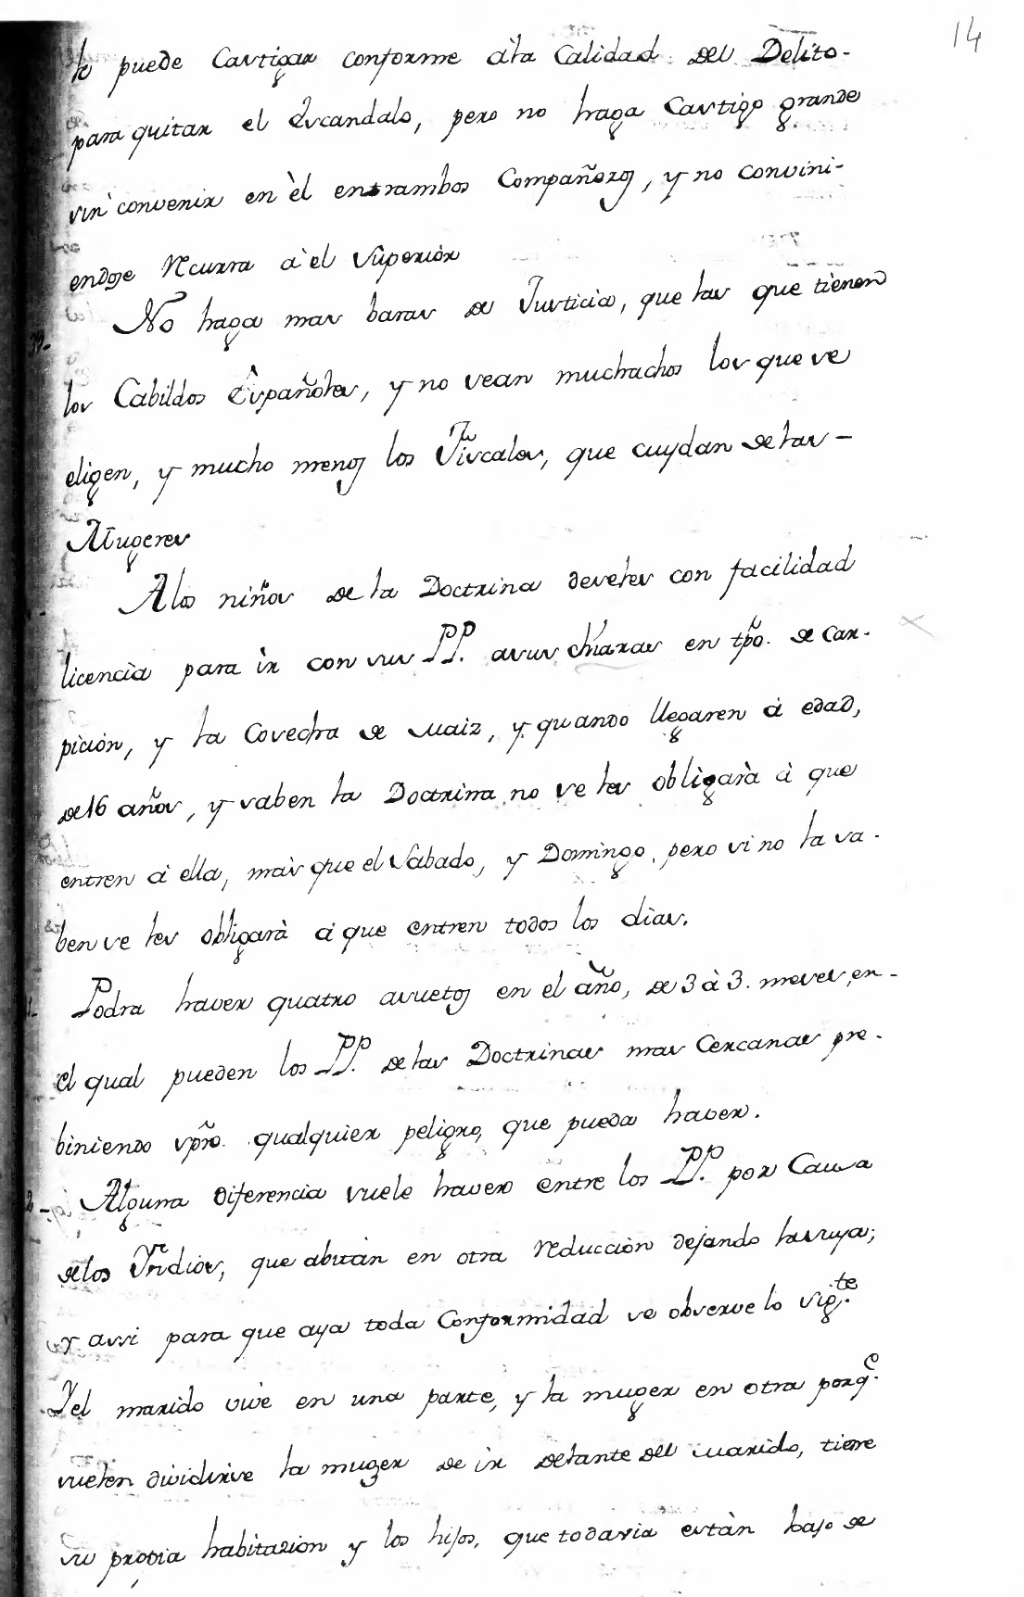 14
le puede Castigar conforme á la Calidad del Delito-
para quitar el Escandalo, pero no haga Castigo grande
sin convenir en èl entrambos Compañeros, y no convini-
endose recurra à el Superiòr
39. No haga mas baras de Justicia, que las que tienen
los Cabildos Españoles, y no sean muchachos los que se
eligen, y mucho menos los Fiscales, que cuydan de las-
Mugeres
A los niños de la Doctrina deseles con facilidad
licencia para ìr con sus PP. a sus Charas en tpõ. de car-
picion, y la Cosecha de Maiz, y quando llegaren á edad,
de 16 años, y saben la Doctrina no se les obligarà à que
entren á ella, màs que el Sabado, y Domingo, pero si no la sa-
ben se les obligarà á que entren todos los dias.
1. Podra haver quatro asuetos en el año, de 3 à 3. meses, en-
el qual pueden los PP. de las Doctrinas mas Cercanas pre-
biniendo spre. qualquier peligro, que pueda haver.
2- Alguna diferencia suele haver entre los PP. por Causa
de los Yndios, que abitan en otra reducciòn dejando la suya;
y assi para que aya toda Conformidad se observe lo sigte.
Si el marido vive en una parte, y la muger en otra porqe.
suelen dividirse la muger de ir delante del Marido, tiene
su propia habitazion y los hijos, que todavia estàn bajo de